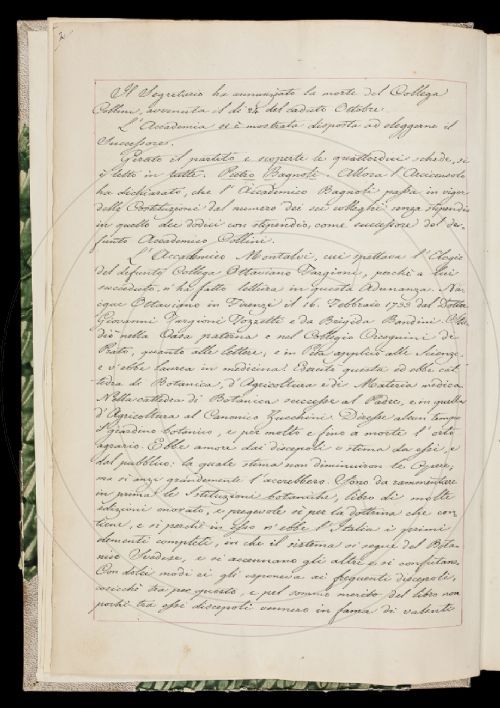 2.
Il Segretario ha annunziato la morte del Collega
Collini, avvenuta il dì 24 del caduto Ottobre.
L'Accademia si è mostrata disposta ad eleggerne il
Successore.
Girato il partito e scoperte le quattordici schede, si
è letto in tutte: Pietro Bagnoli. Allora l'Arciconsolo
ha dichiarato, che l'Accademico Bagnoli passa in vigor
delle Costituzioni dal numero dei sei colleghi senza stipendio
in quello dei dodici con stipendio, come successore del de-
funto Accademico Collini.
L'Accademico Montalvi, cui spettava l'Elogio
del defunto Collega Ottaviano Targioni, perchè a lui
succeduto, n'ha fatto lettura in questa Adunanza. Nac-
que Ottaviano in Firenze il 16. Febbraio 1755 dal Dottor
Giovanni Targioni Tozzetti e da Brigida Bandini. Stu-
diò nella Casa paterna e nel Collegio Cicognini di
Prato, quanto alle lettere, e in Pisa applicò alle Scienze,
e v'ebbe laurea in medicina. Esercitò questa ed ebbe cat-
tedra di Botanica, d'Agricoltura e di Materia medica.
Nella cattedra di Botanica successe al Padre, e in quella
d'Agricoltura al Canonico Zucchini. Diresse alcun tempo
l'giardino botanico, e per molto e fino a morte l'orto
agrario. Ebbe amore dai discepoli e stima da essi, e
dal pubblico: la quale stima non diminuiron le Opere,
ma sì anzi grandemente l'accrebbero. Sono da rammentare
in prima le Istituzioni botaniche, libro di molte
edizioni onorato, e pregevole sì per la dottrina che con
tiene, e sì perchè in esso n'ebbe l'Italia i primi
elementi completi, in che il sistema si segue del Bota-
nico Svedese, e si accennano gli altri e si confutano.
Con dolci modi ei gli esponeva ai frequenti discepoli,
cosicchè tra per questo, e pel sommo merito del libro non
pochi tra essi discepoli vennero in fama di valenti